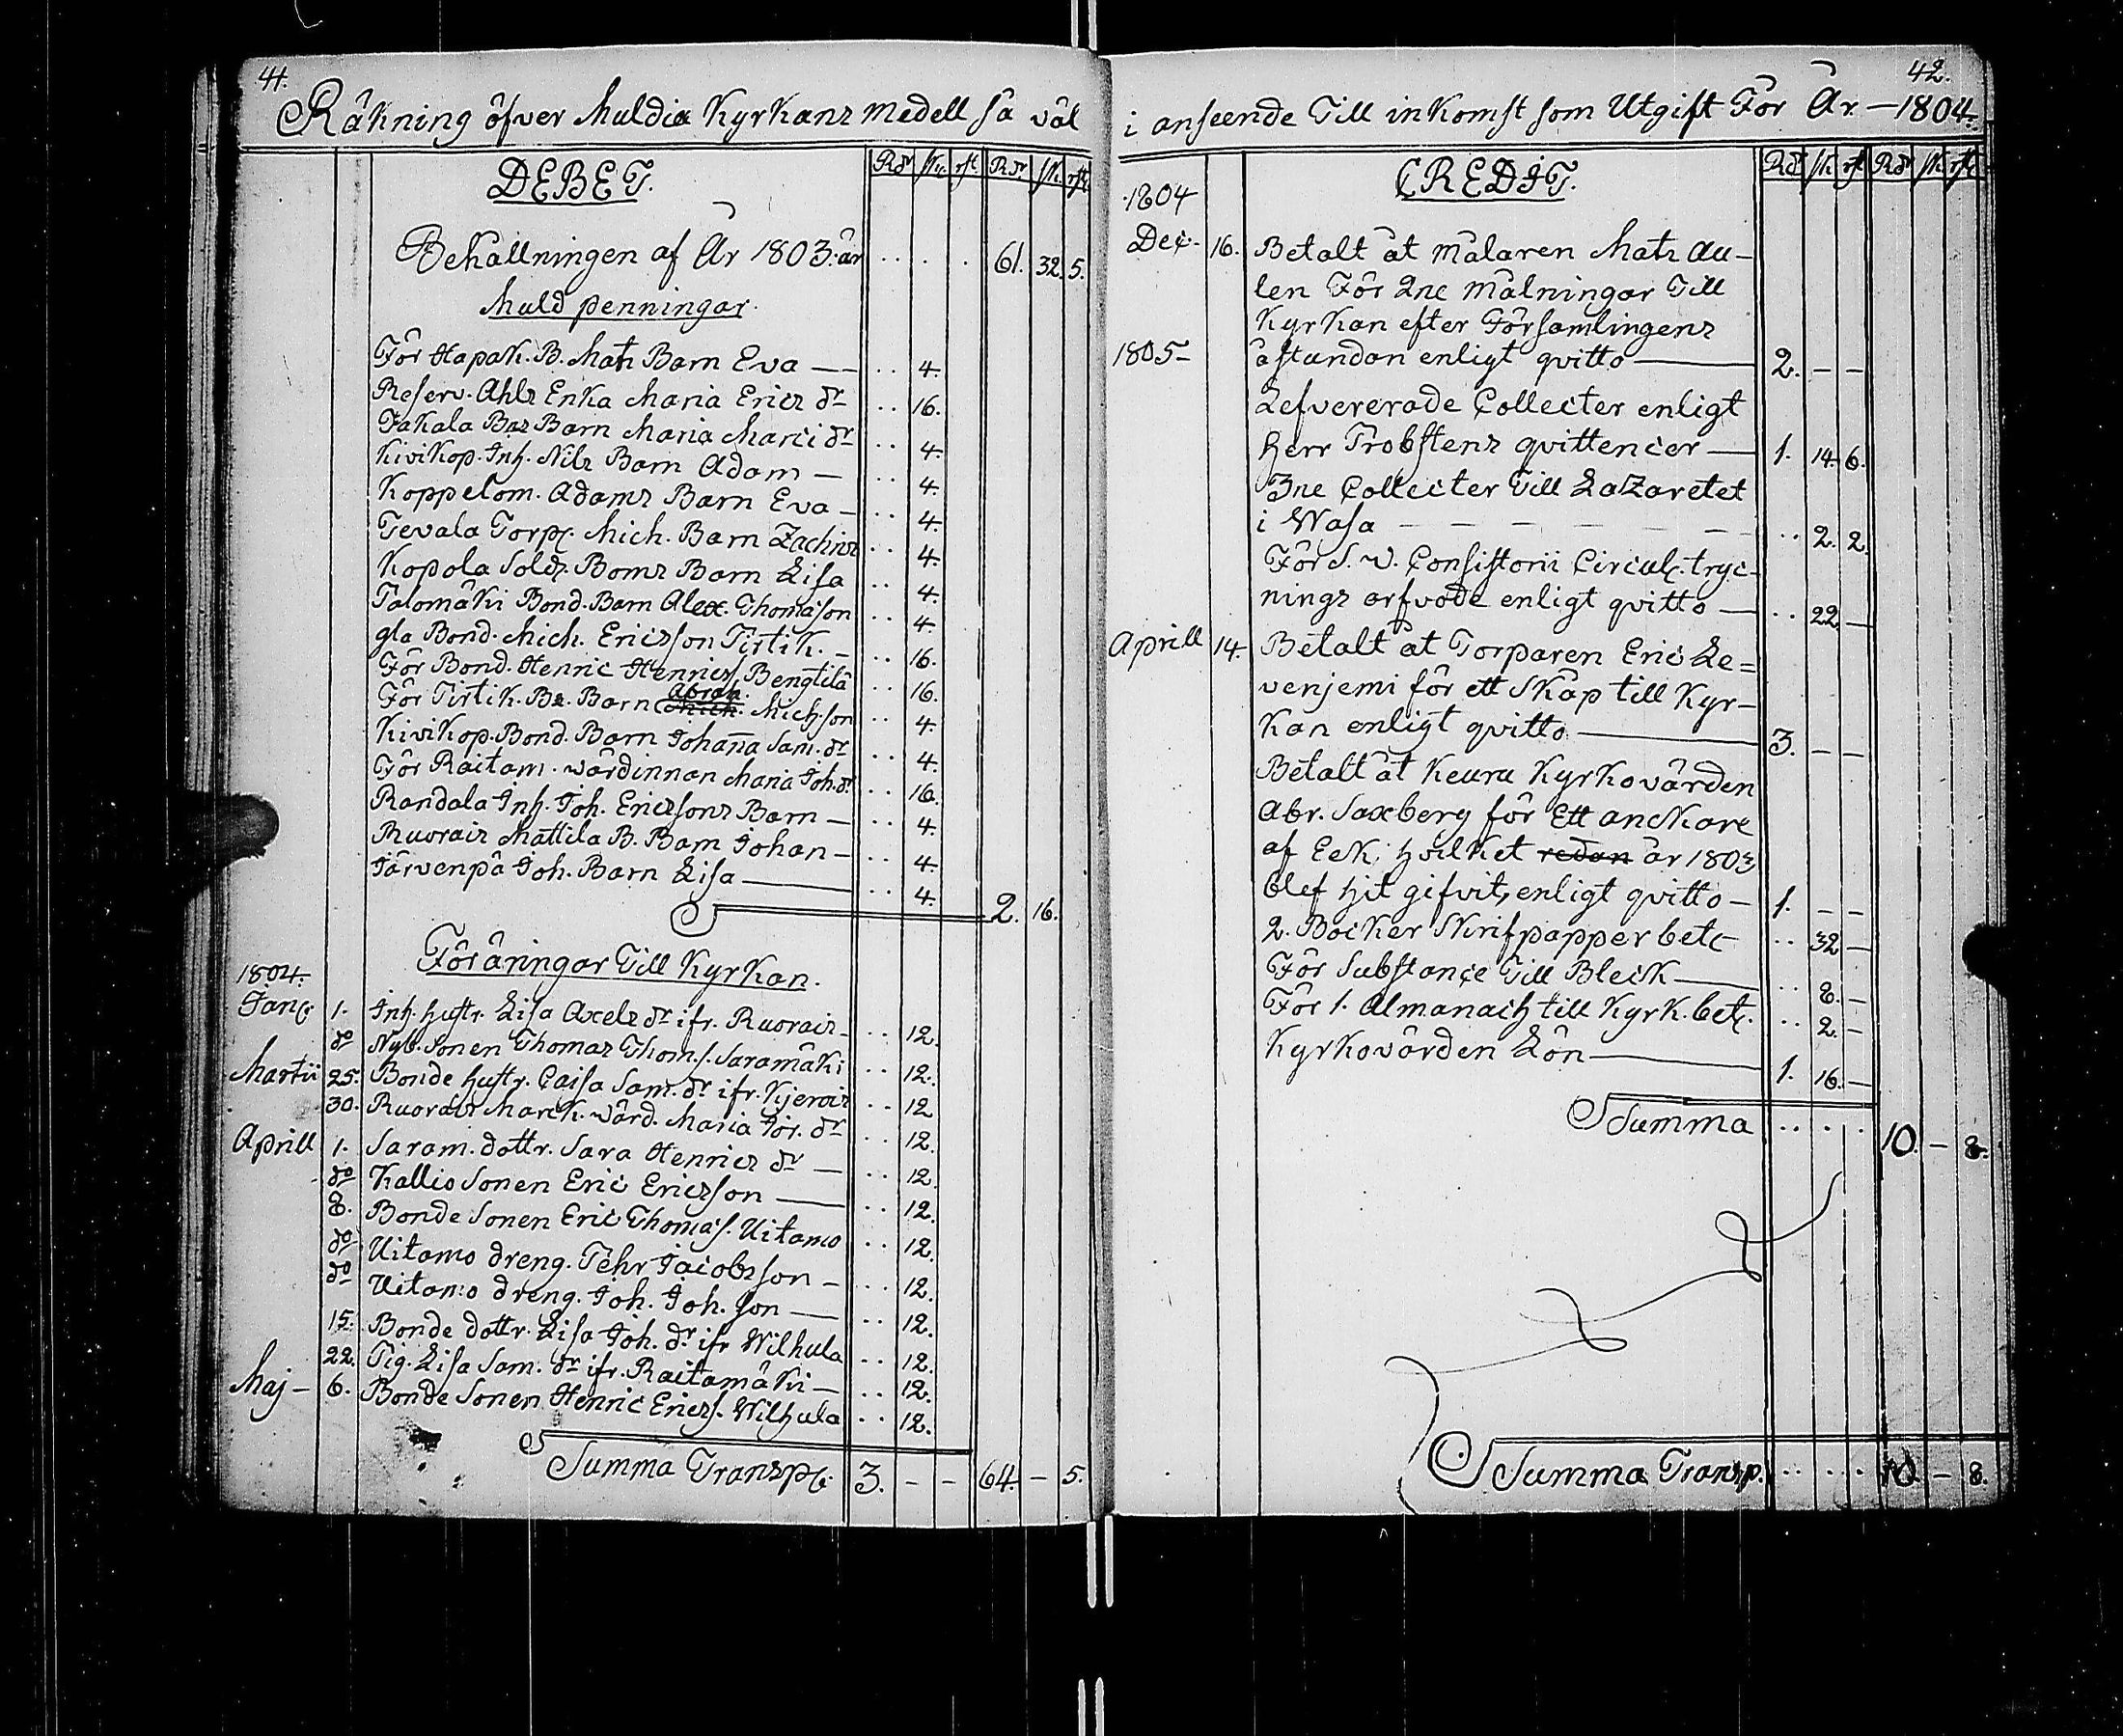 41.
Räkning öfver Muldia Kyrkans medell så väl
DEBET.
Rdr sk. rst. Rdr sk. rst.
Behållningen af År 1803. är .. . . 61. 32. 5.
Muld penningar.
För Hapak. B. Mats Barn Eva — .. 4.
Reserv. Ahls Enka Maria Erics dr .. 16.
Jakala Bas Barn Maria Marci dr .. 4.
Kivikop. Inh. Nils Barn Adam — .. 4.
Koppelom. Adams Barn Eva — .. 4.
Tevala Torp. Mich. Barn Zachris .. 4.
Kopola Sold. Boms Barn Lisa .. 4.
Palomäki Bond. Barn Alex. Thomason .. 4.
gla Bond. Mich. Ericsson Pirtik. — .. 16.
För Bond. Henric Henrics. Bengtilä .. 16.
Abrah.
För Pirtik. Bs. Barn Mich. Mich.son .. 4.
Kivikop. Bond. Barn Johana Sam. dr .. 4.
För Raitam. wärdinnan Maria Joh. dr .. 16.
Randala Inh. Joh. Ericssons Barn — .. 4.
Ruorais Mattila B. Barn Johan — .. 4.
Järvenpä Joh. Barn Lisa — .. 4.
2. 16.
Föräringar Till Kyrkan.
1804.
Jan. 1. Inh. hustr. Lisa Axels dr ifr. Ruorais — .. 12.
do Nyb. Sonen Thomas Thoms. Saramäki .. 12.
Martii 25. Bonde hustr. Caisa Sam. dr ifr. Kjerois .. 12
30. Ruorais Marck. wärd. Maria Jör. dr .. 12.
Aprill 1. Saram. dottr. Sara Henrics dr — .. 12.
do Kallio Sonen Eric Ericsson — .. 12.
8. Bonde Sonen Eric Thomas. Uitamo .. 12.
do Uitamo dreng. Pehr Jacobsson — .. 12.
do Uitamo dreng. Joh. Joh. son — .. 12.
15. Bonde dottr. Lisa Joh. dr ifr Wilhula .. 12.
22. Pig. Lisa Sam. dr ifr. Raitamäki — .. 12.
Maj — 6. Bonde Sonen Henric Erics. Wilhula .. 12.
Summa Transp. 3. — — 64. — 5.
42.
i anseende Till inkomst som Utgift För År. — 1804.
CREDIT.
Rdr sk rst Rdr sk. rst
1804
Dec. 16. Betalt åt Målaren Mats Au-
len För 2ne Målningar Till
Kyrkan efter Församlingens
1805 — åstundan enligt qvitto — 2. — —
Lefvererade Collecter enligt
Herr Probstens qvittencer — 1. 14. 6.
3ne Collecter Till Lazaretet
i Wasa — — — — — .. 2. 2.
För S. w. Consistorii Circul. tryc-
nings arfvode enligt qvitto — .. 22. —
Aprill 14. Betalt åt Torparen Eric Le=
venjemi för ett Skåp till Kyr-
kan enligt qvitto — 3. — —
Betalt åt Keuru Kyrkovärden
Abr. Saxberg för Ett anckare
af Eek; hvilket redan år 1803
blef hit gifvit, enligt qvitto — 1. — —
2. Böcker Skrifpapper bet. .. 32 —
För Substance Till Bleck — .. 8. —
För 1. Almanach till Kyrk. bet. .. 2. —
Kyrkovärden Lön — 1. 16. —
Summa .. .. 10. — 8.
Summa Transp. .. .. 10 — 8.